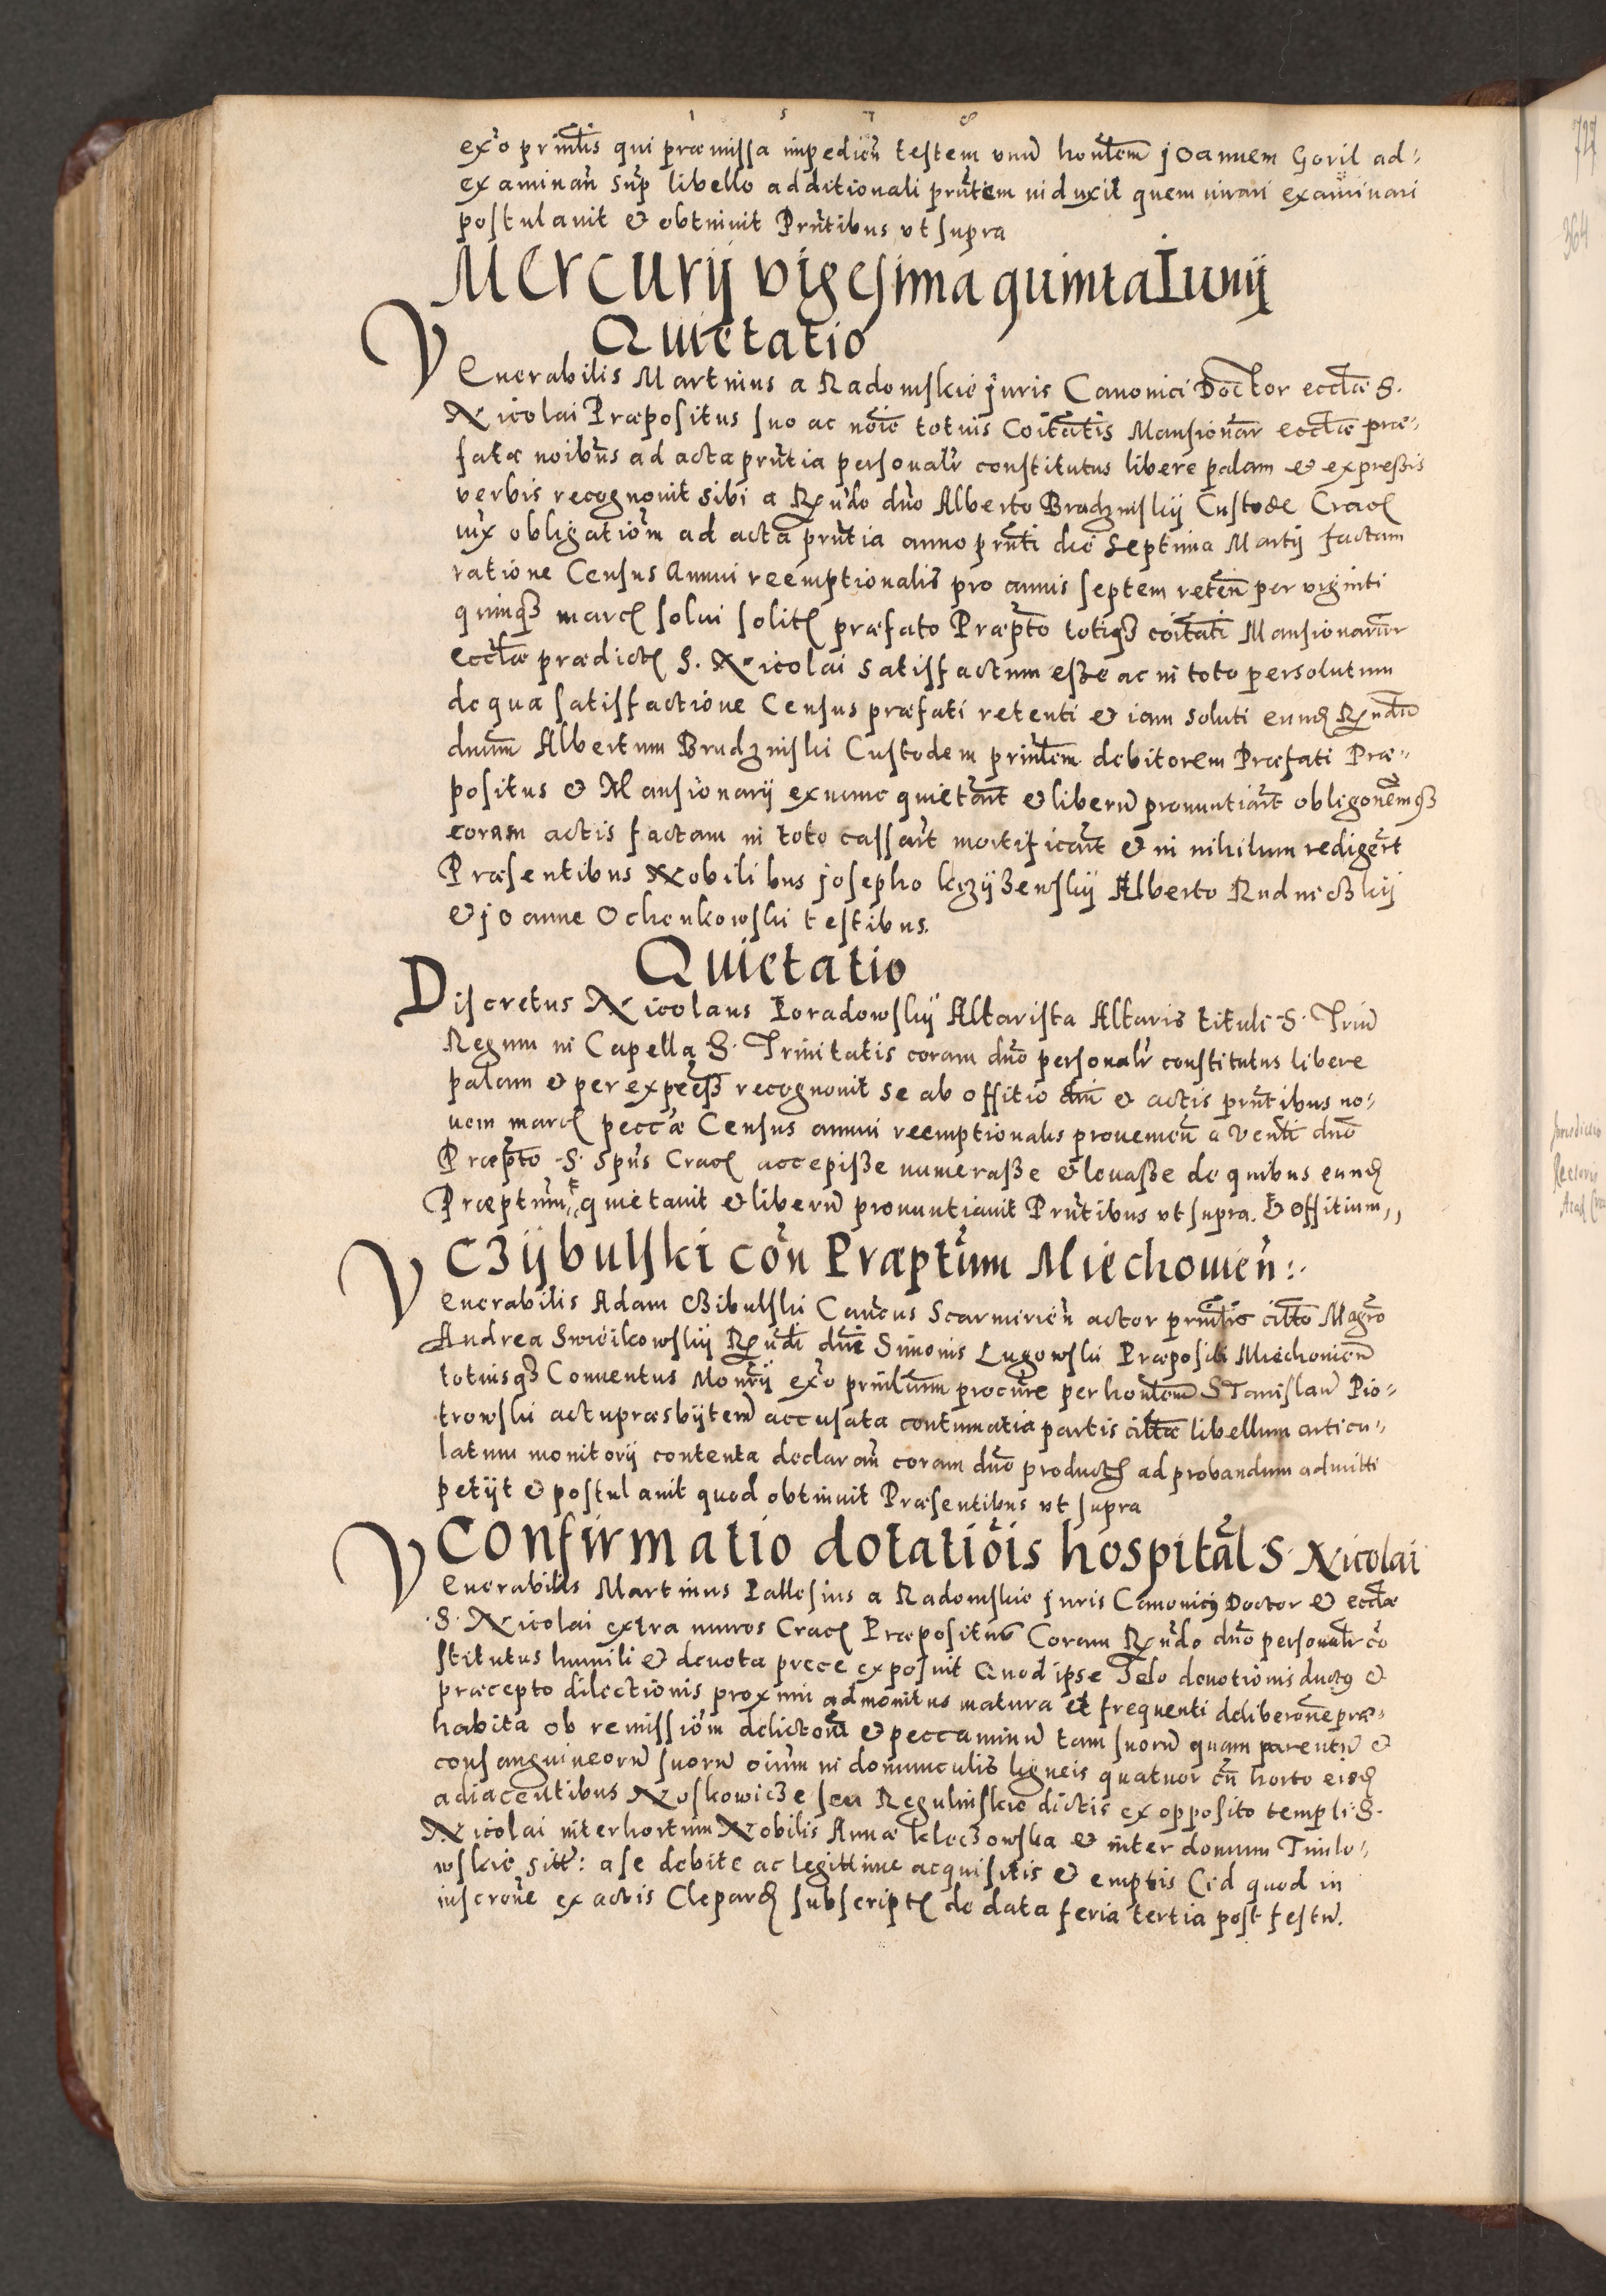 1 5 7 8
exo prinlis qui præmissa impedien testem vnu honlem joannem Goril ad-
examinan sup libello additionali prntem induxit quem iurari examinari
postulauit & obtinuit Prntibus vt supra
Mercurij vigesima quinta Iunij
Quietatio
Venerabilis Martinus a Radomskie juris Canonici Doctor ecclæ S.
Nicolai Præpositus suo ac noie totius Coitatis Mansionar ecclæ præ-
fatæ noibus ad acta prntia personalr constitutus libere palam & expreßis
verbis recognouit sibi a Rndo dno Alberto Brudzinskij Custode Crac
iux obligatiom ad acta prntia anno prnti die septima Martij factam
ratione Census Annui reemptionalis pro annis septem reten per viginti
quinqz marc solui solit præfato Præpto totiqz coitati Mansionarum
ecclæ prædict S. Nicolai satisfactum eße ac in toto persolutum
de qua satisfactione Census præfati retenti & iam soluti eund Rndu
dnum Albertum Brudzinski Custodem prinlem debitorem Præfati Præ-
positus & Mansionarij exnunc quietant & liberu pronuntiant obligonemqz
coram actis factam in toto cassant mortificant & in nihilum redigert
Præsentibus Nobilibus josepho krzyßewskij Alberto Rudniczkij
& joanne Ochenkowski testibus.
Quietatio
Discretus Nicolaus Poradowskij Altarista Altaris tituli S. Triu
Regum in Capella S. Trinitatis coram dno personalr constitutus libere
palam & per expreß recognouit se ab offitio dni & actis prntibus no-
uem marc pecc'æ Census annui reemptionalis prouemen a Venli dno
Præpto S. Spns Crac accepiße numeraße & leuaße de quibus eund
Præptum quietauit & liberu pronuntiauit Prntibus vt supra. & offitium,,
Czijbulski con Præptum Miechouien:.
Venerabilis Adam czibulski Cancus Scarmirien actor prinlis citto Magro
Andrea Swieikowskij Rndi dni Simonis Lugowski Præpositi Miechouien
totiusqz Conuentus Monrij exo prinlium procure per honlem Stanislau Pio-
trowski actu præsbyteru accusata contumatia partis cittæ libellum articu-
latum monitorij contenta declaran coram dno product ad probandum admitti
petijt & postulauit quod obtinuit Præsentibus vt supra
Confirmatio dotatiois hospital S. Nicolai
Venerabilis Martinus Pallesius a Radomskie juris Canonicj Doctor & ecclæ
S. Nicolai extra muros Crac Præpositus Coram Rndo dno personalr co
stitutus humili & deuota prece exposuit Quod ipse Telo deuotionis ductus &
præcepto dilectionis proximi admonitus matura et frequenti deliberone præ-
habita ob remissiom delictoru & peccaminu tam suoru quam parentu &
consanguineoru suoru oium in domunculis ligneis quatuor cu horto eisd
adiacentibus Noskowicze seu Regulinskie dictis ex opposito templi S.
Nicolai inter hortum Nobilis Annæ kloczowska & inter domum Timlo-
wskie sitt: a se debite ac legittime acquisitis & emptis (id quod in
inscrone ex actis Clepard subscript de data feria tertia post festu.